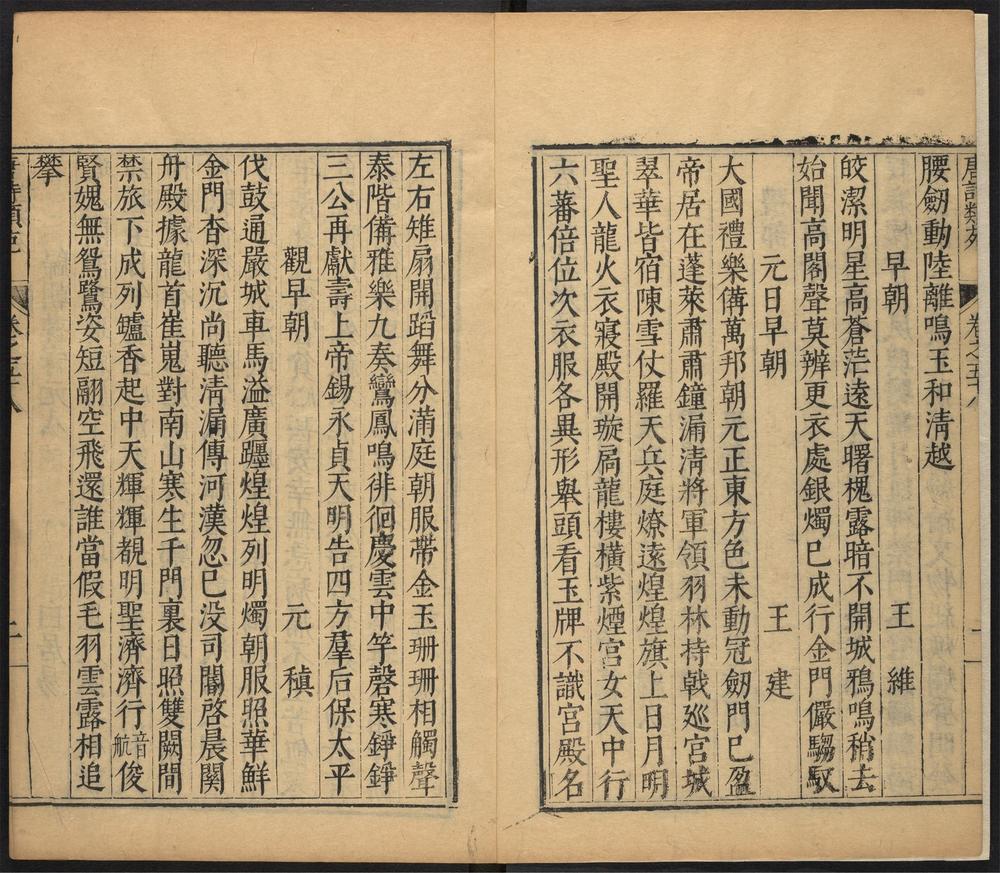 腰劒動陸離鳴玉和清越
早朝 王維
皎潔明星高蒼茫遠天曙槐露暗不開城鴉鳴稍去
始聞高閣聲莫辨更衣處銀燭已成行金門儼騶馭
元日早朝 王建
大國禮樂備萬邦朝元正東方色未動冠劒門已盈
帝居在蓬萊肅肅鐘漏清將軍領羽林持戟廵宮城
翠華皆宿陳雪仗羅天兵庭燎遠煌煌旗上日月明
聖人龍火衣寢殿開璇扃龍樓橫紫煙宮女天中行
六蕃倍位次衣服各異形舉頭看玉牌不識宮殿名
左右雉扇開蹈舞分滿庭朝服帶金玉珊珊相觸聲
泰階備雅樂九奏鸞鳳鳴徘徊慶雲中竽磬寒錚錚
三公再獻壽上帝錫永貞天明告四方羣后保太平
觀早朝 元稹
伐鼓通嚴城車馬溢廣躔煌煌列明燭朝服照華鮮
金門杳深沉尚聽清漏傳河漢忽已没司閽啓晨關
丹殿據龍首崔嵬對南山寒生千門裏日照雙闕間
禁旅下成列鑪香起中天輝輝覩明聖濟濟行音航俊
賢媿無鴛鷺姿短翮空飛還誰當假毛羽雲露相追
攀
卷之五十八